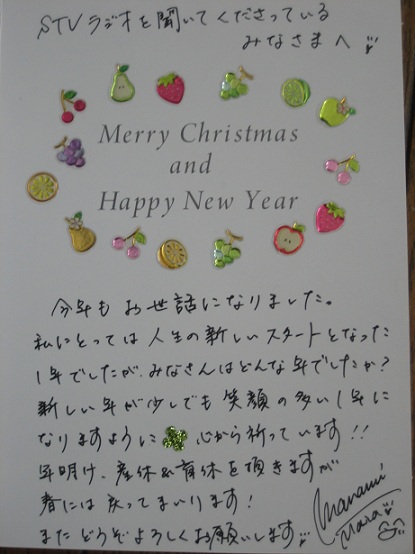 STVラジオを聞いてくださっている
みなさまへ
Merry Christmas
and
Happy New Year
今年もお世話になりました。
私にとっては人生の新しいスタートとなった
1年でしたが、みなさんはどんな年でしたか?
新しい年が少しでも笑顔の多い1年に
なりますように 心から祈っています!!
年明け、産休&育休を頂きますが
春には戻ってまいります!
またどうぞよろしくお願いします
Manami
Mara